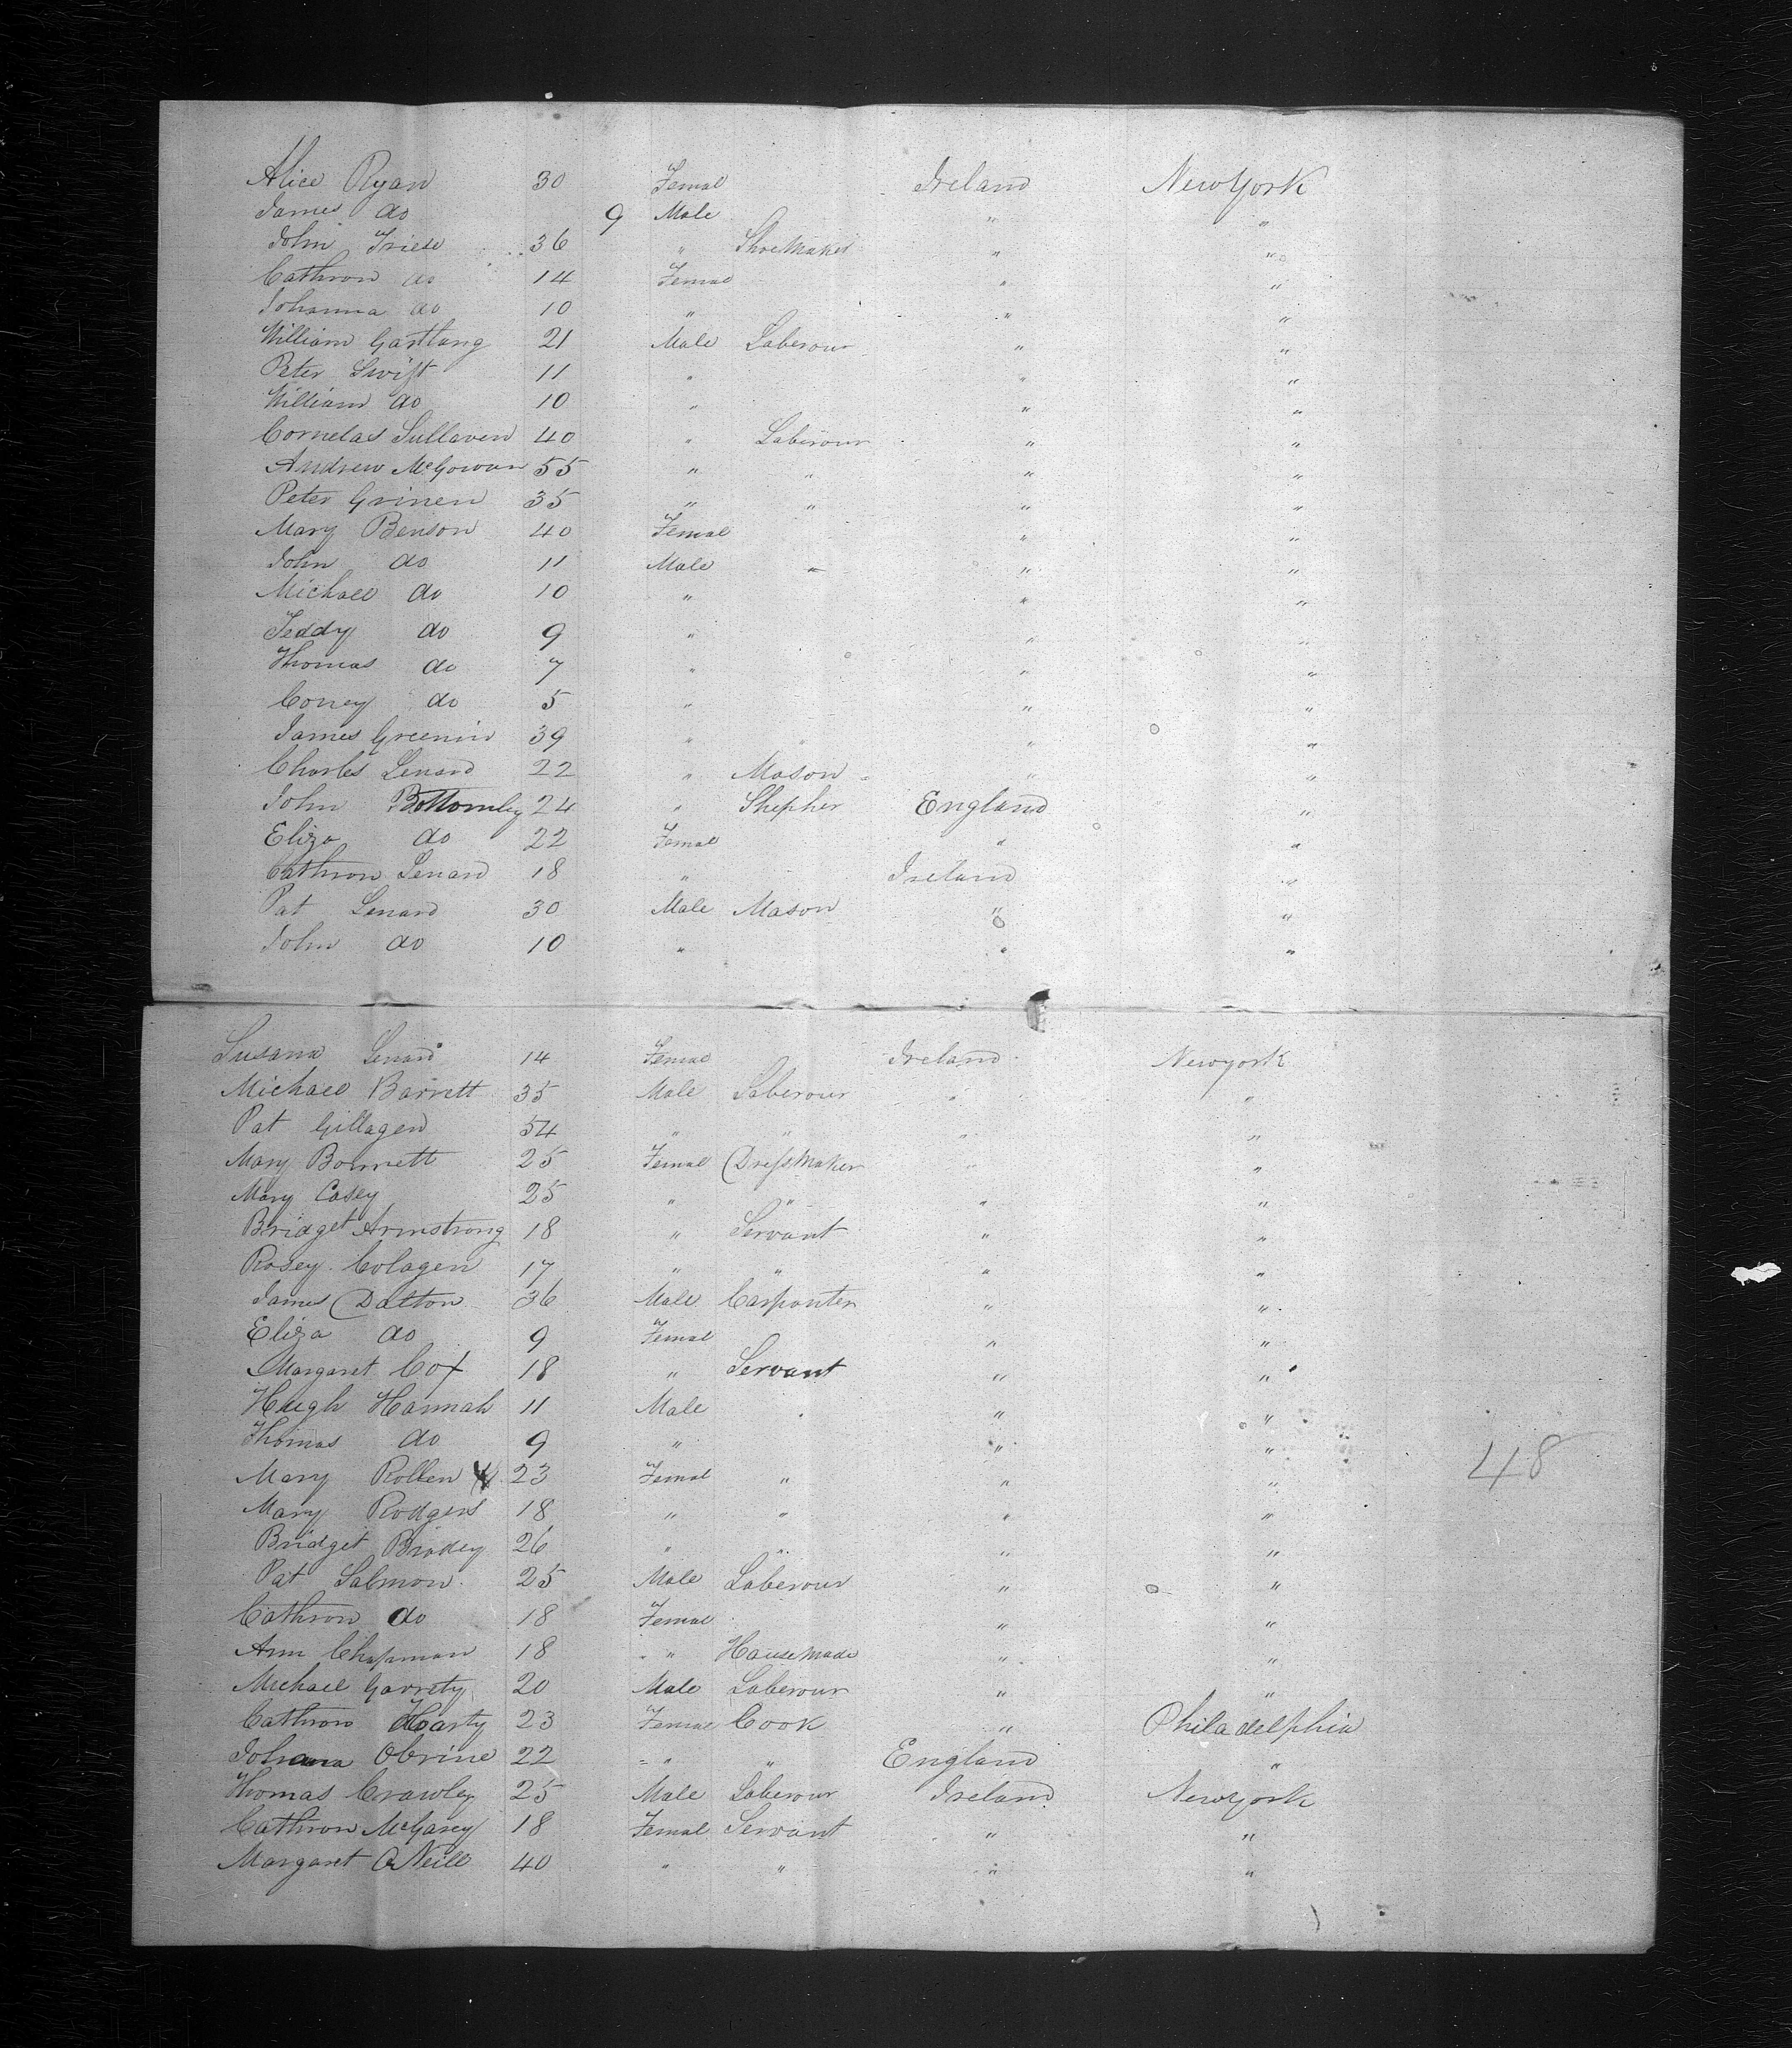 Alice Ryan 30 Femal Ireland New York
James do 9 Male " "
John Friese 36 " Shoe Maker " "
Cathron do 14 Femal " "
Johanna do 10 " " "
William Gartlang 21 Male Laberour " "
Peter Swift 11 " " "
William do 10 " " "
Cornelas Sullaven 40 " Laberour " "
Andrew McGowan 55 " " " "
Peter Grinen 35 " " " "
Mary Benson 40 Femal " "
John do 11 Male " " "
Michael do 10 " " "
Teddy do 9 " " "
Thomas do 7 " " "
Coney do 5 " " "
James Greenin 39 " " " "
Charles Lenard 22 " Mason " "
John Bottomley 24 " Shepher England "
Eliza do 22 Femal " "
Cathron Lenard 18 " Ireland "
Pat Lenard 30 Male Mason " "
John do 10 " " "
Susana Lenard 14 Femal Ireland New york
Michael Barrett 35 Male Laberour " "
Pat Gillagen 54 " " " "
Mary Bonnett 25 Femal Dress Maker " "
Mary Casey 25 " " " "
Bridget Armstrong 18 " Servant " "
Rosey Colagen 17 " " " "
James Dalton 36 Male Carponter " "
Eliza do 9 Femal " "
Margaret Cox 18 " Servant " "
Hugh Hannah 11 Male " "
Thomas do 9 " " "
Mary Rollen 23 Femal " " " 48
Mary Rodgers 18 " " " "
Bridget Bradey 26 " " " "
Pat Salmon 25 Male Laberour " "
Cathron do 18 Femal " "
Ann Chapman 18 " House Made " "
Michael Garrety 20 Male Laberour " "
Cathron Harty 23 Femal Cook " Philadelphia
Johanna Obrine 22 " " England "
Thomas Crawley 25 Male Laberour Ireland New York
Cathron McGarey 18 Femal Servant " "
Margaret O Neill 40 " " " "